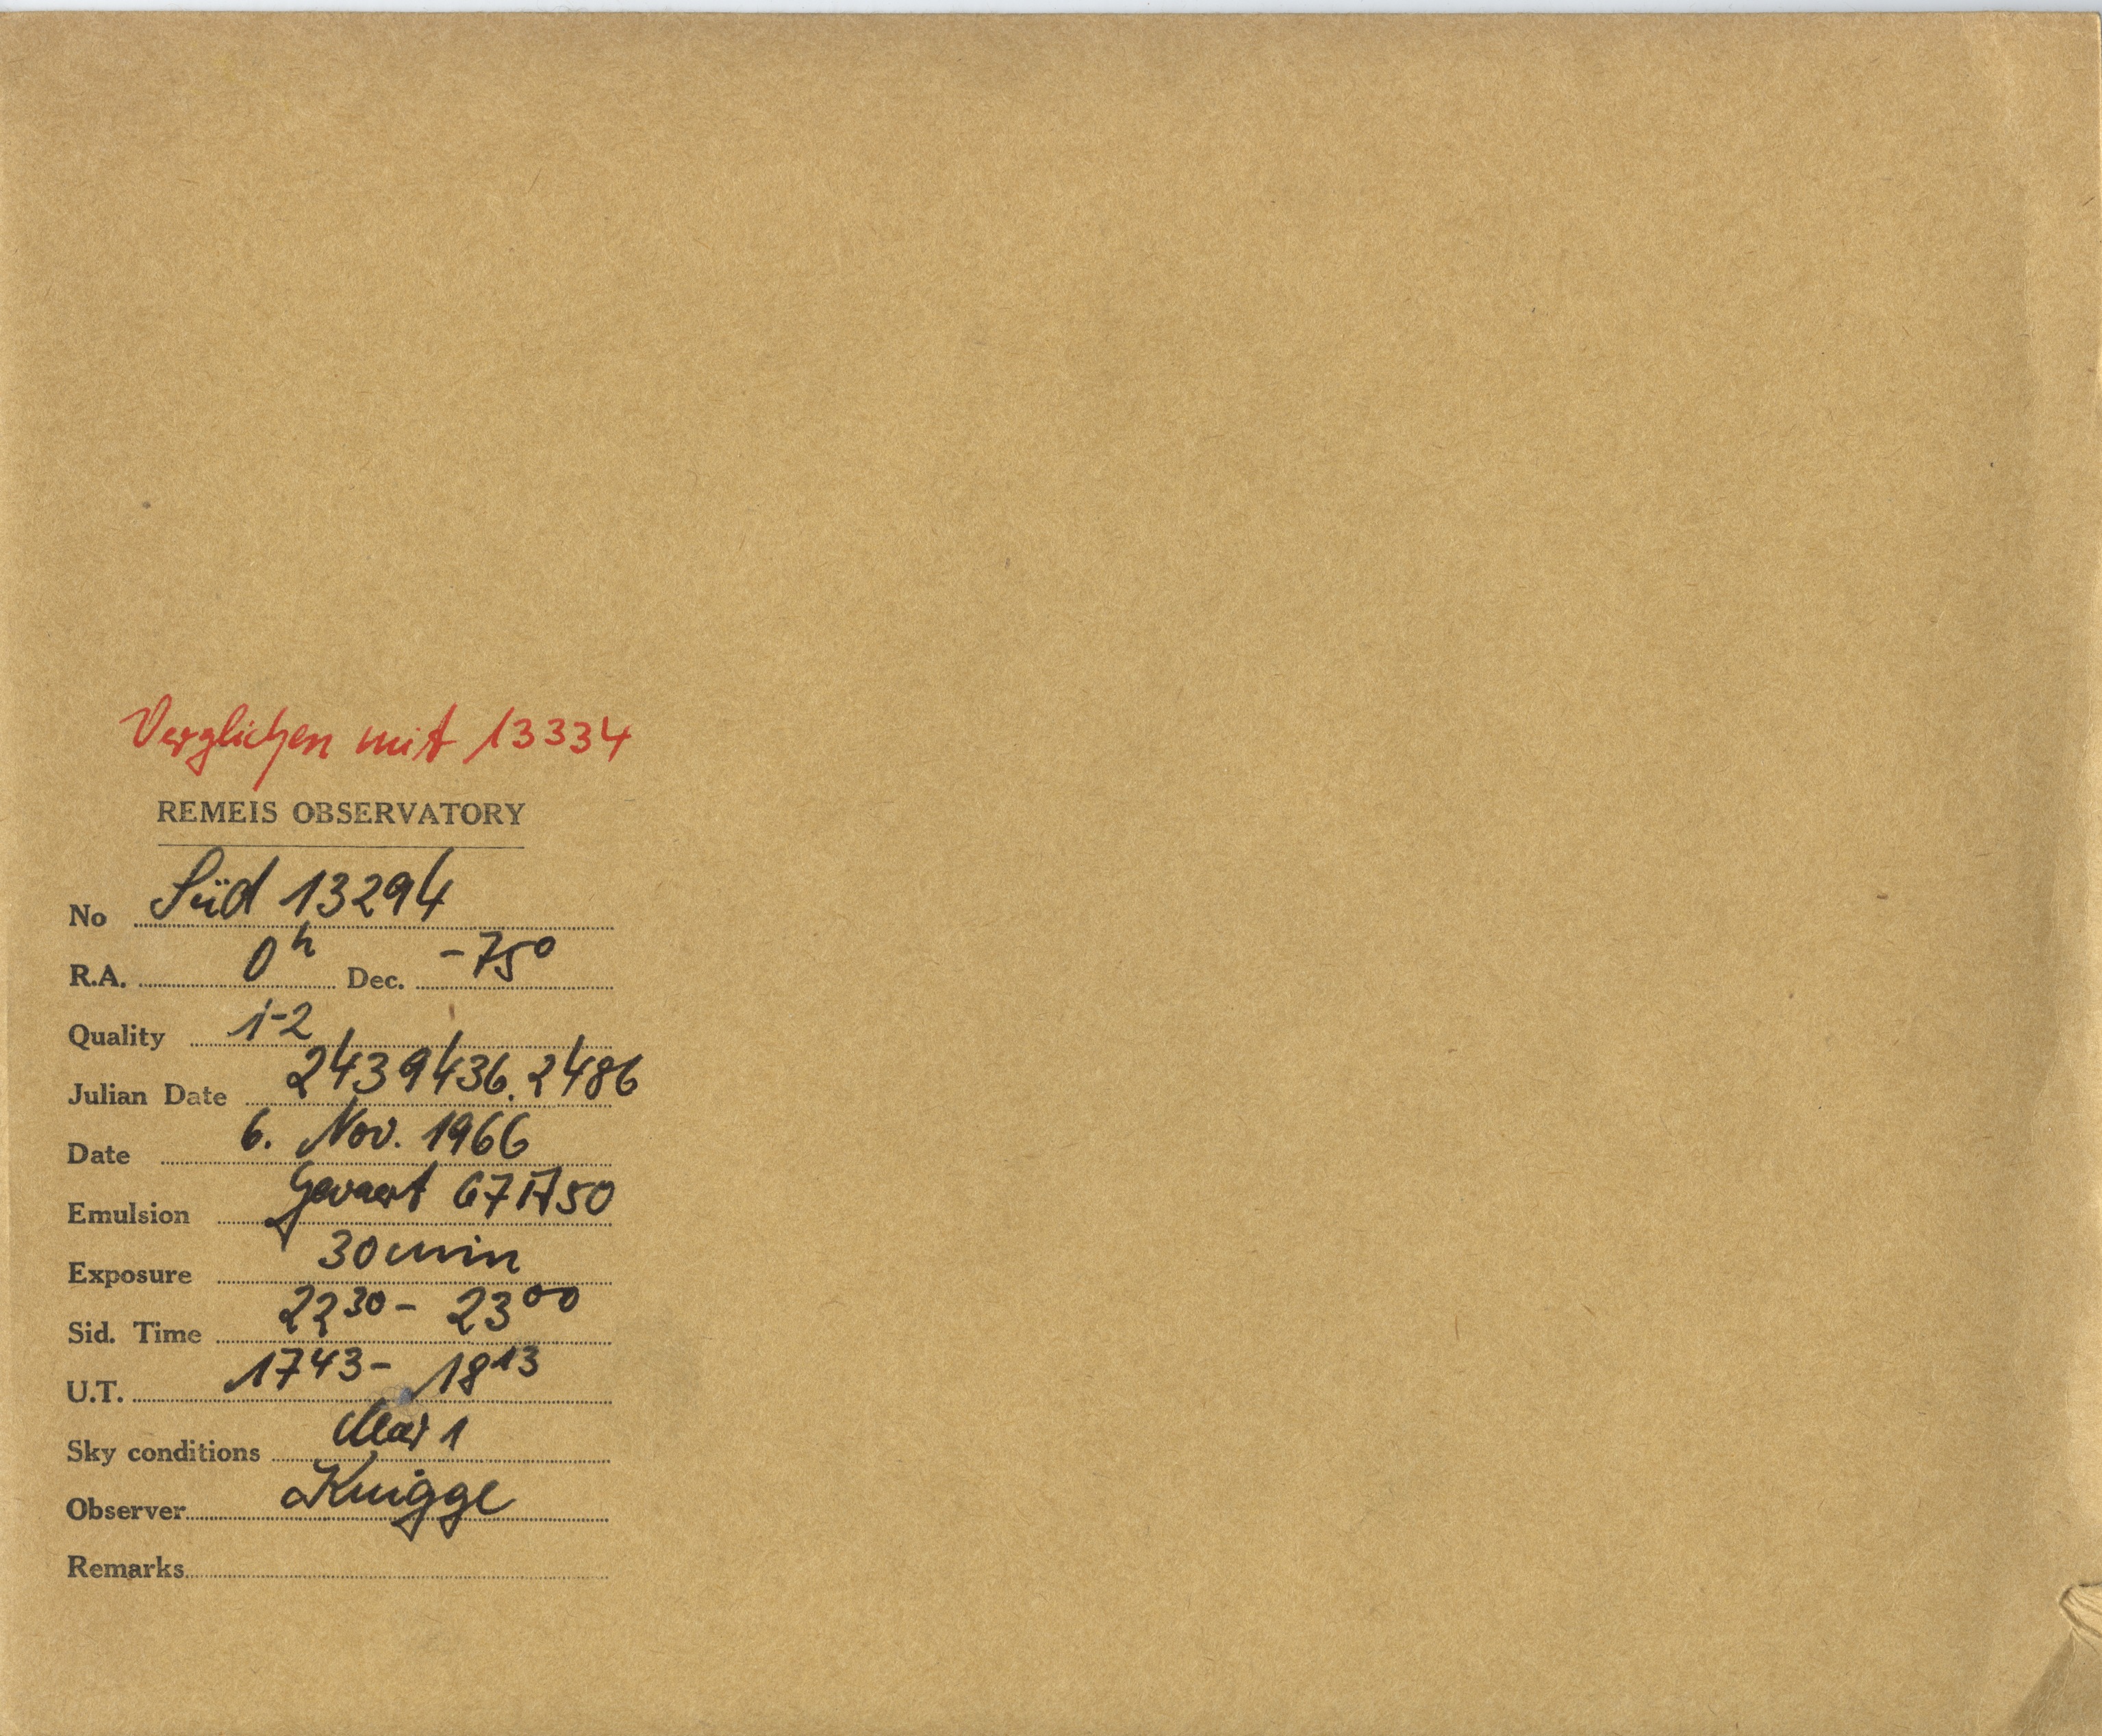 Verglichen mit 13334
REMEIS OBSERVATORY
No Süd 13294
R.A. 0h Dec. -75°
Quality 1-2
Julian Date 2439436.2486
Date 6. Nov. 1966
Emulsion Gevaert 67A50
Exposure 30 min
Sid. Time 22 30 - 23 00
U.T. 17 43 - 18 13
Sky conditions clear 1
Observer Knigge
Remarks